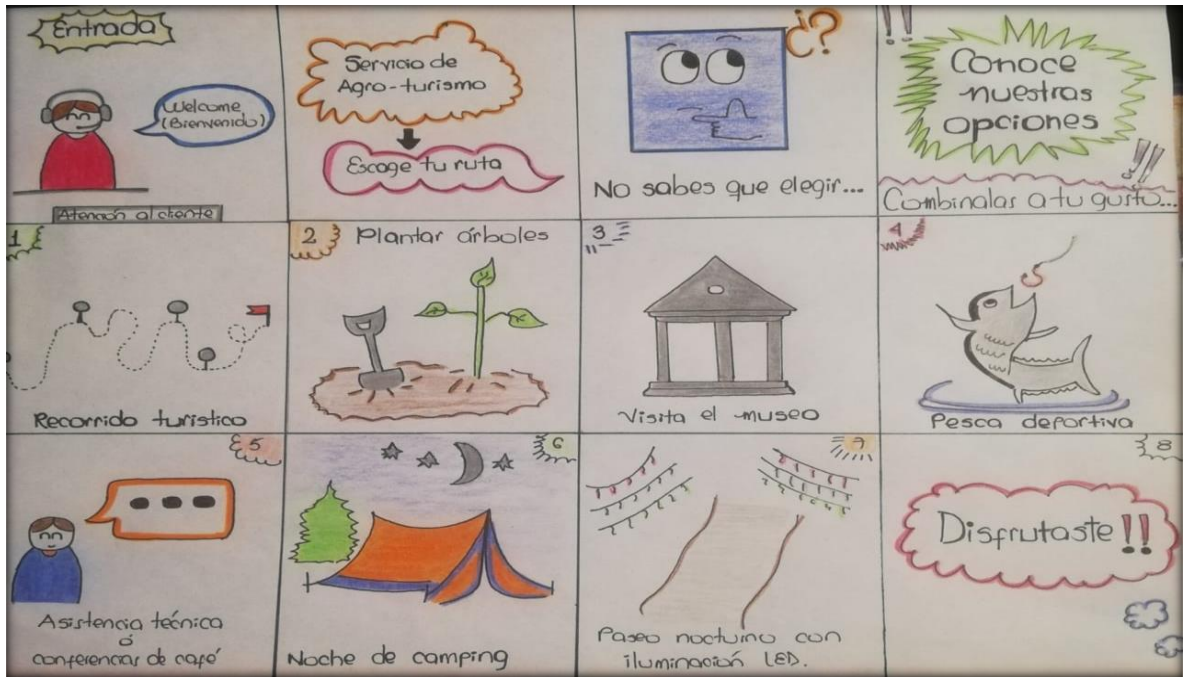 Entrada
Welcome
(Bienvenido)
Atención al cliente
Servicio de
Agro-turismo
Escoge tu ruta
¿?
No sabes que elegir...
!!
Conoce
nuestras
opciones
!!
Combinalas a tu gusto...
1
Recorrido turístico
2
Plantar árboles
3
Visita el museo
4
Pesca deportiva
5
Asistencia técnica
ó
conferencias de café
6
Noche de camping
7
Paseo nocturno con
iluminación LED.
8
Disfrutaste!!